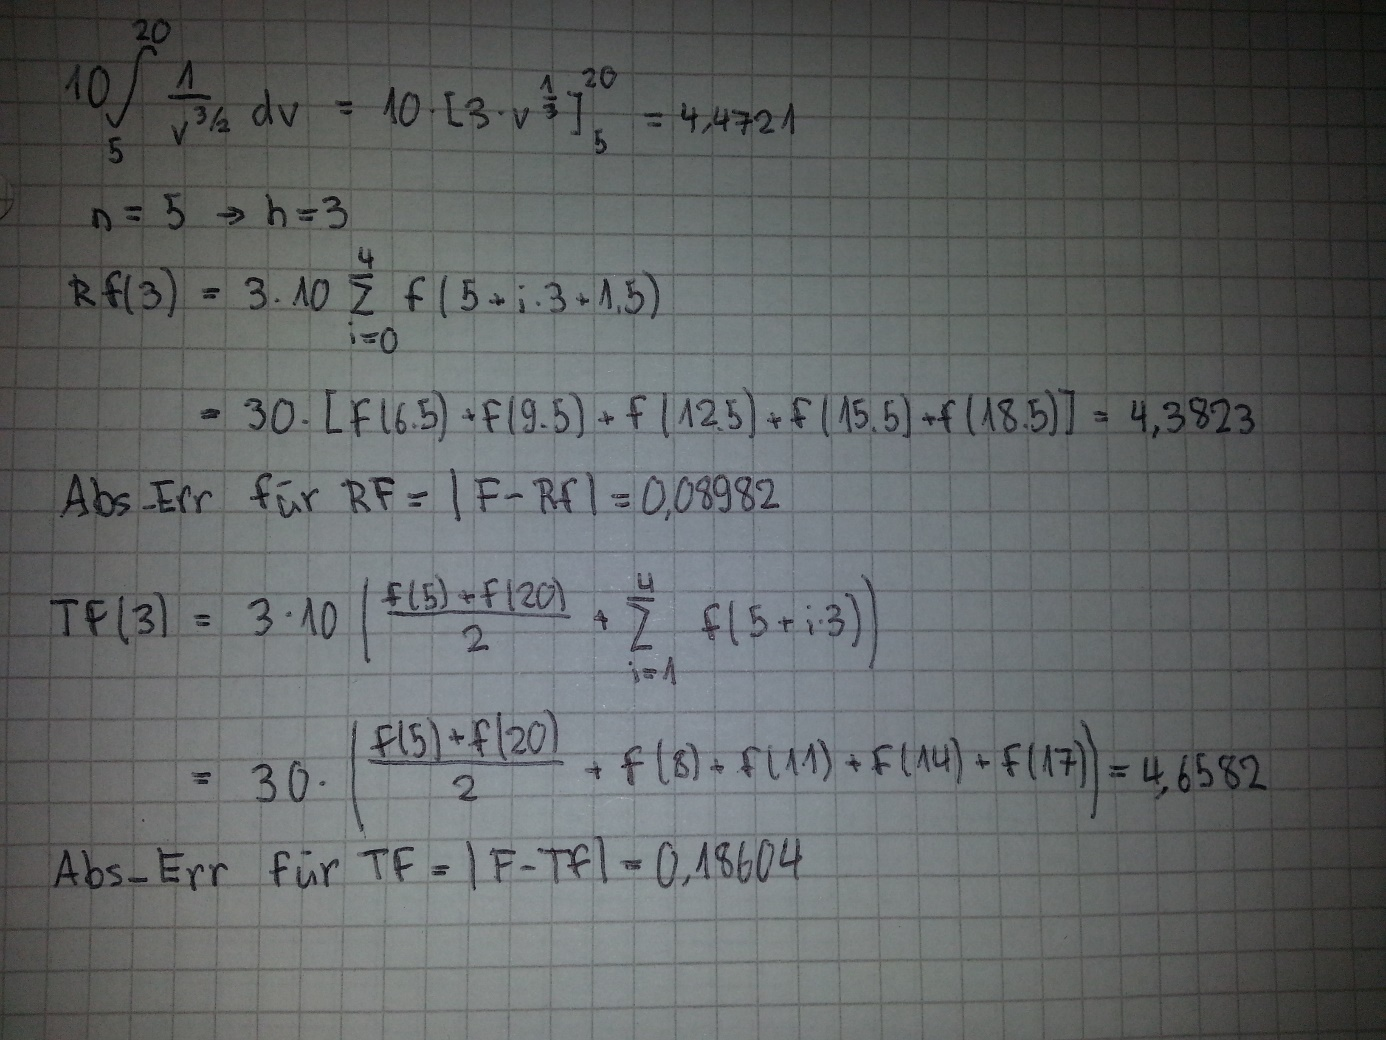 10 ∫₅²⁰ 1/v^(3/2) dv = 10·[3·v^(1/3)]₅²⁰ = 4,4721
n = 5 → h = 3
Rf(3) = 3·10 Σ_{i=0}^{4} f(5+i·3+1,5)
= 30·[f(6.5)+f(9.5)+f(12.5)+f(15.5)+f(18.5)] = 4,3823
Abs_Err für RF = |F-Rf| = 0,08982
TF(3) = 3·10 ((f(5)+f(20))/2 + Σ_{i=1}^{4} f(5+i·3))
= 30·((f(5)+f(20))/2 + f(8)+f(11)+f(14)+f(17)) = 4,6582
Abs_Err für TF = |F-Tf| = 0,18604